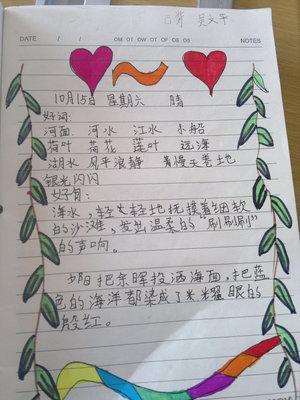 DATE / / NOTES
10月15日 星期六 晴
好词:
河面 河水 江水 小船
荷叶 荷花 莲叶 远海
湖水 风平浪静 着慢天卷地
银光闪闪
好句:
海水,轻轻地抚摸着细软
的沙滩,发出温柔的“刷刷刷”
的声响。
夕阳把余晖投洒海面,把蓝
色的海洋都染成了光耀眼的
殷红。